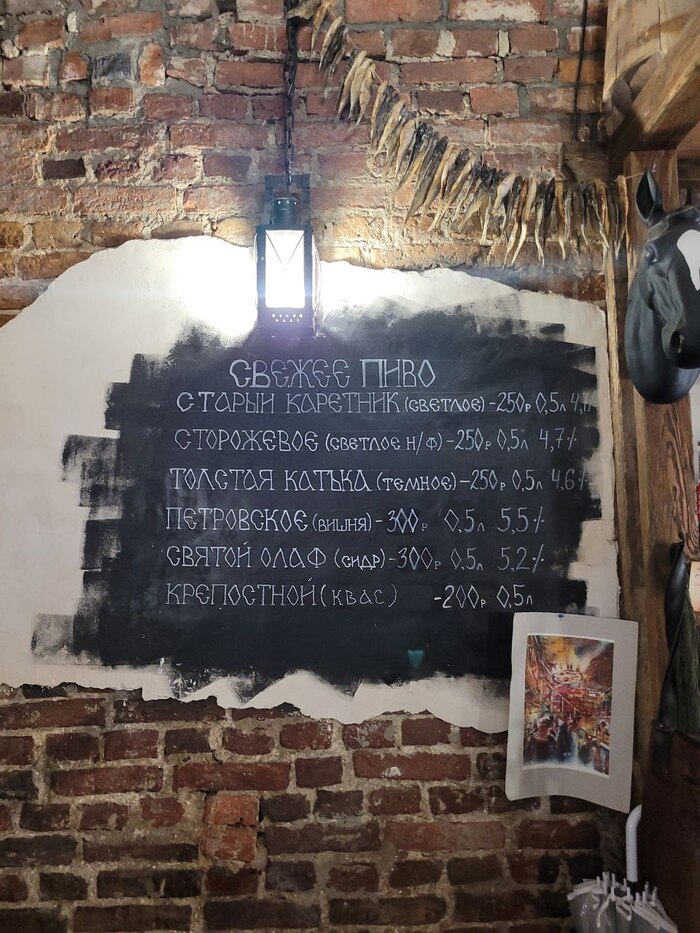 СВЕЖЕЕ ПИВО
СТАРЫЙ КАРЕТНИК (СВЕТЛОЕ) -250р 0,5л
СТОРОЖЕВОЕ (СВЕТЛОЕ Н/Ф) -250р 0,5л 4,7%
ТОЛСТАЯ КАТЬКА (ТЕМНОЕ) -250р 0,5л 4,6%
ПЕТРОВСКОЕ (ВИШНЯ) - 300р 0,5л 5,5%
СВЯТОЙ ОЛАФ (СИДР) -300р 0,5л 5,2%
КРЕПОСТНОЙ (КВАС) -200р 0,5л